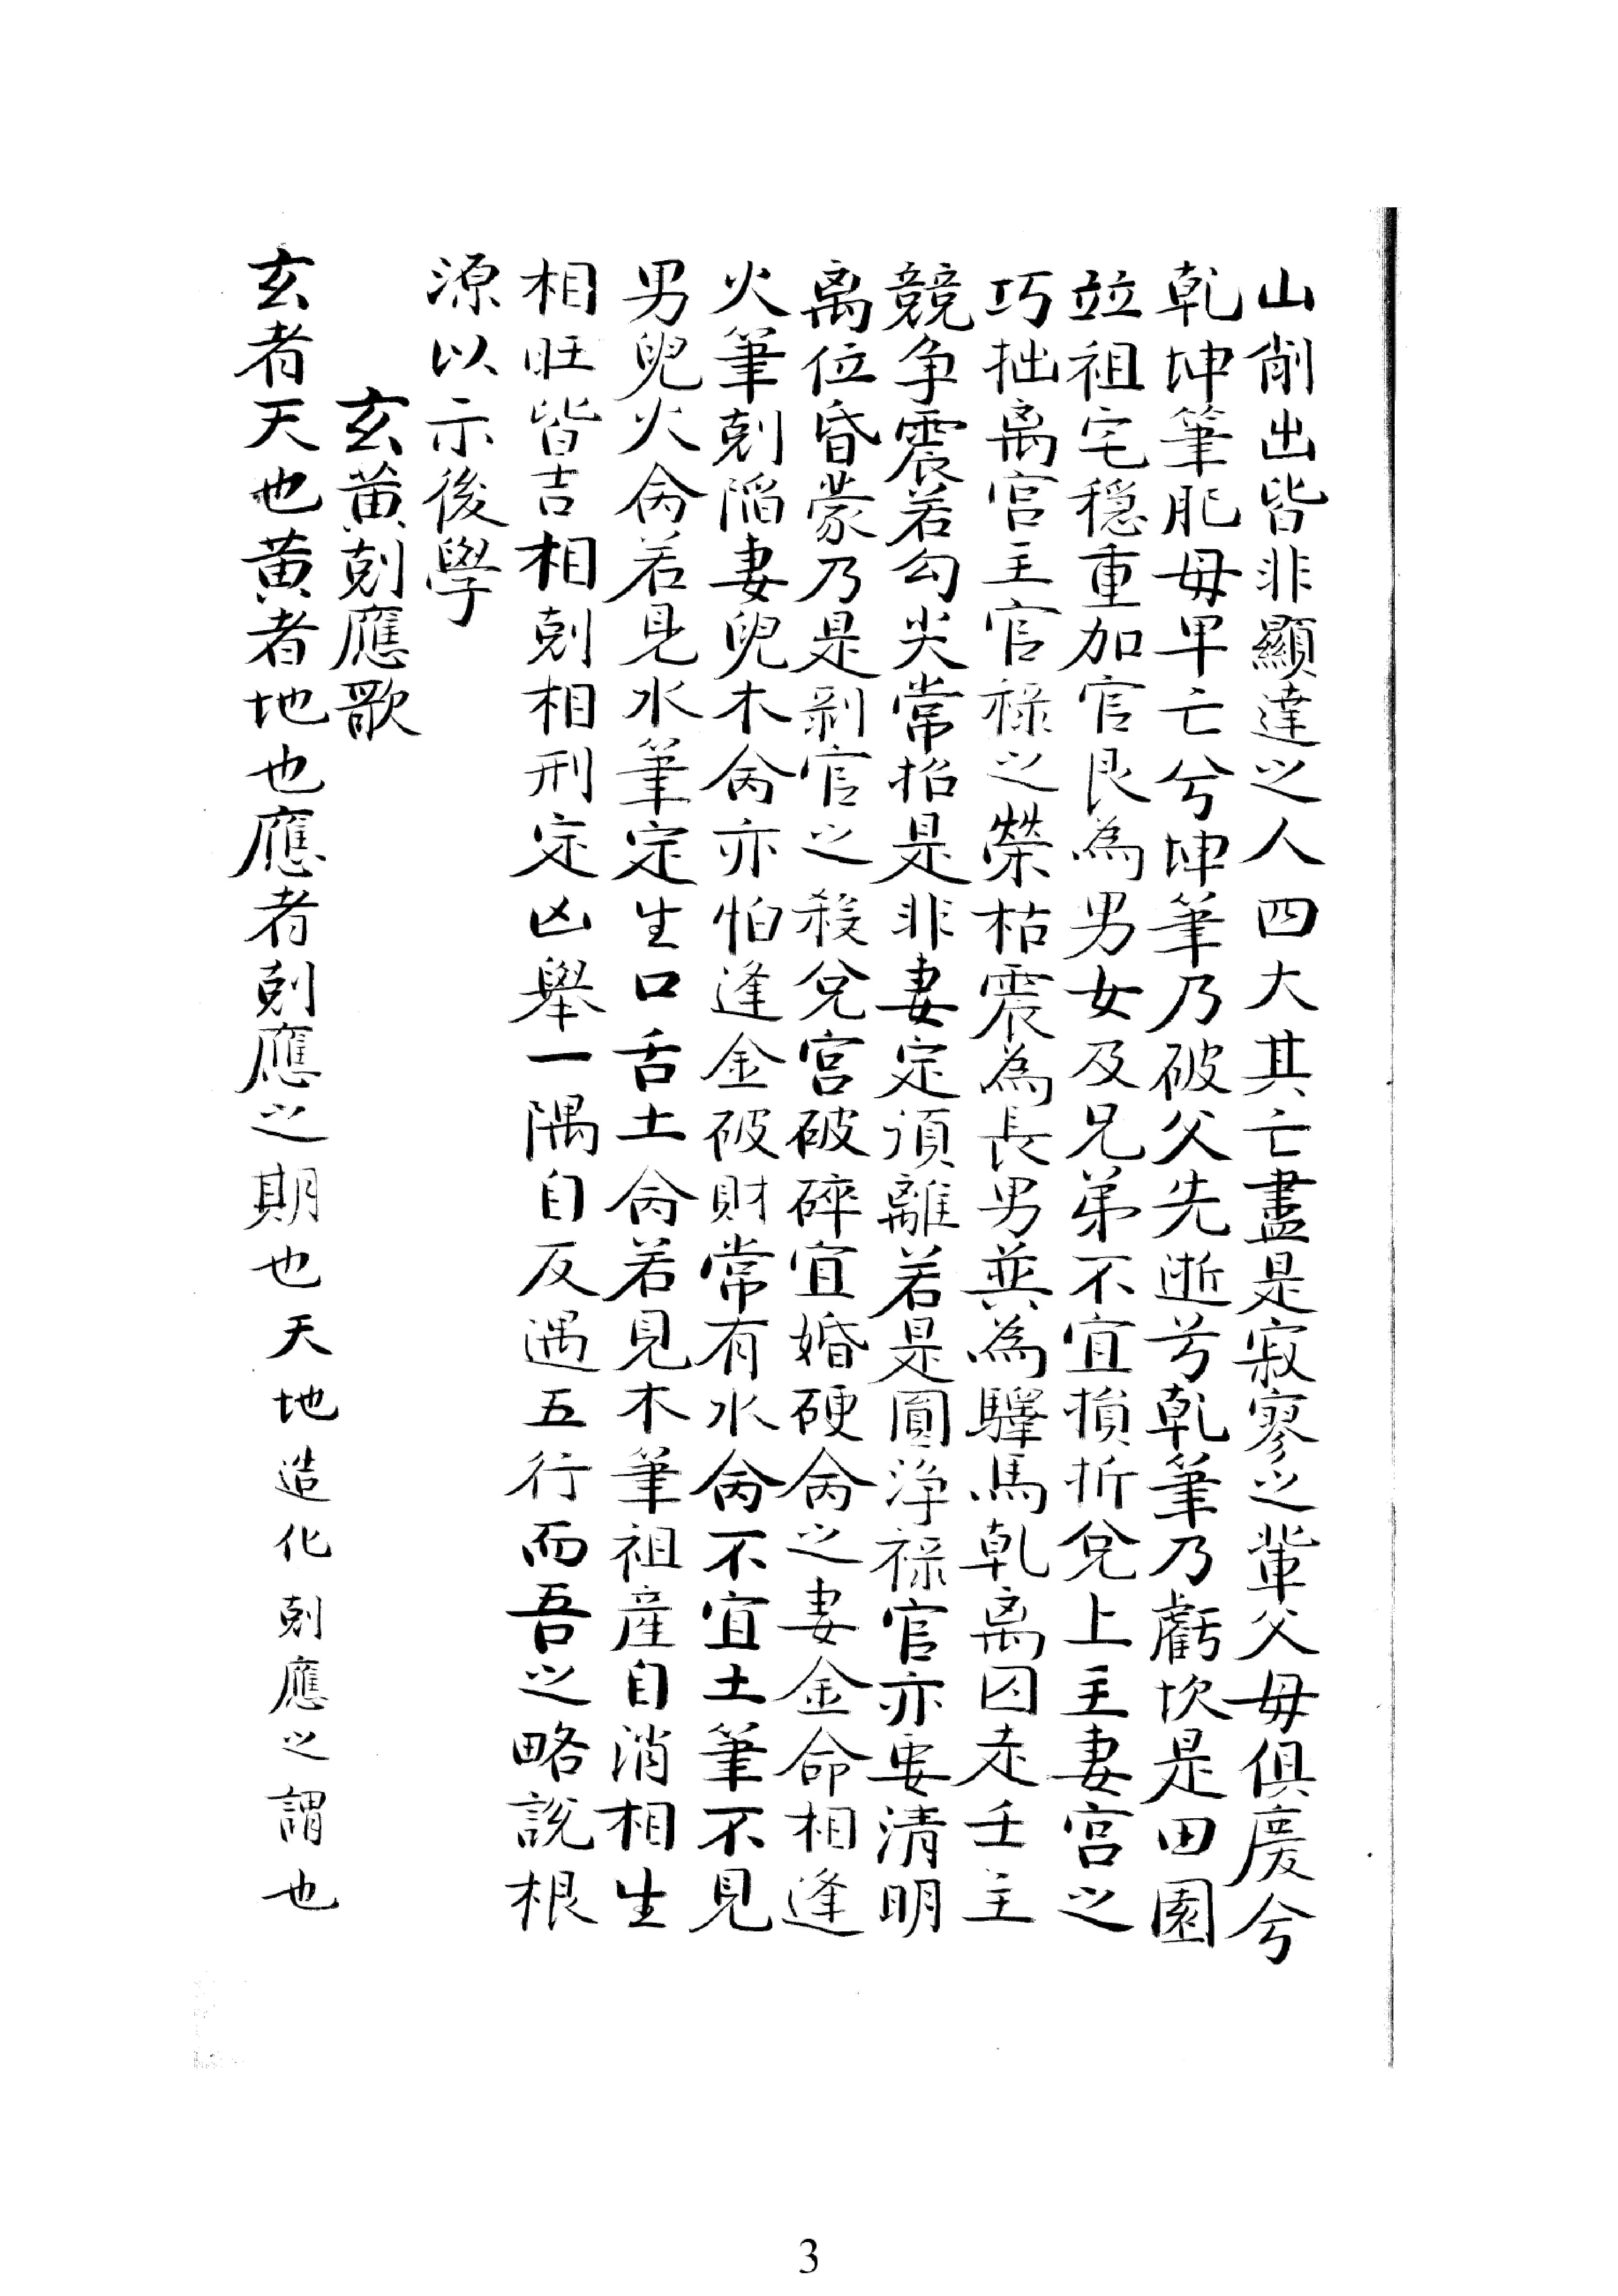 山削出皆非顯達之人四大其亡盡是寂寥之輩父母俱慶兮
乾坤筆肥母早亡兮坤筆乃破父先逝兮乾筆乃虧坎是田園
竝祖宅穩重加官艮為男女及兄弟不宜損折兌上主妻宮之
巧拙离宮主官祿之榮枯震為長男兼為驛馬乾离囚走壬主
競争震若勾尖常招是非妻定須離若是圓淨祿官亦要清明
离位昏蒙乃是剥官之殺兌宮破碎宜婚硬命之妻金命相逢
火筆剋陷妻兒木命亦怕逢金破財常有水命不宜土筆不見
男兒火命若見水筆定生口舌土命若見木筆祖產自消相生
相旺皆吉相剋相刑定凶舉一隅自反遇五行而吾之略說根
源以示後學
玄黄剋應歌
玄者天也黄者地也應者剋應之期也天地造化剋應之謂也
3